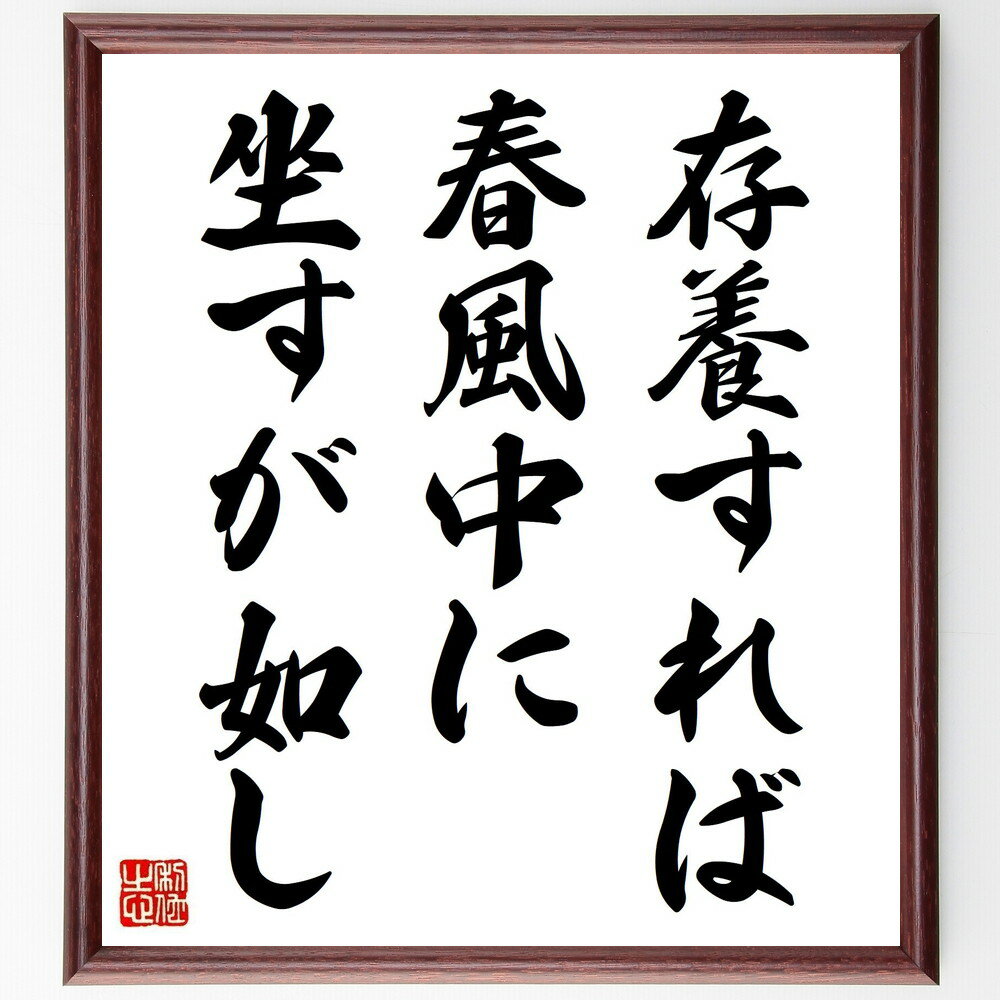 存養すれば
春風中に
坐すが如し